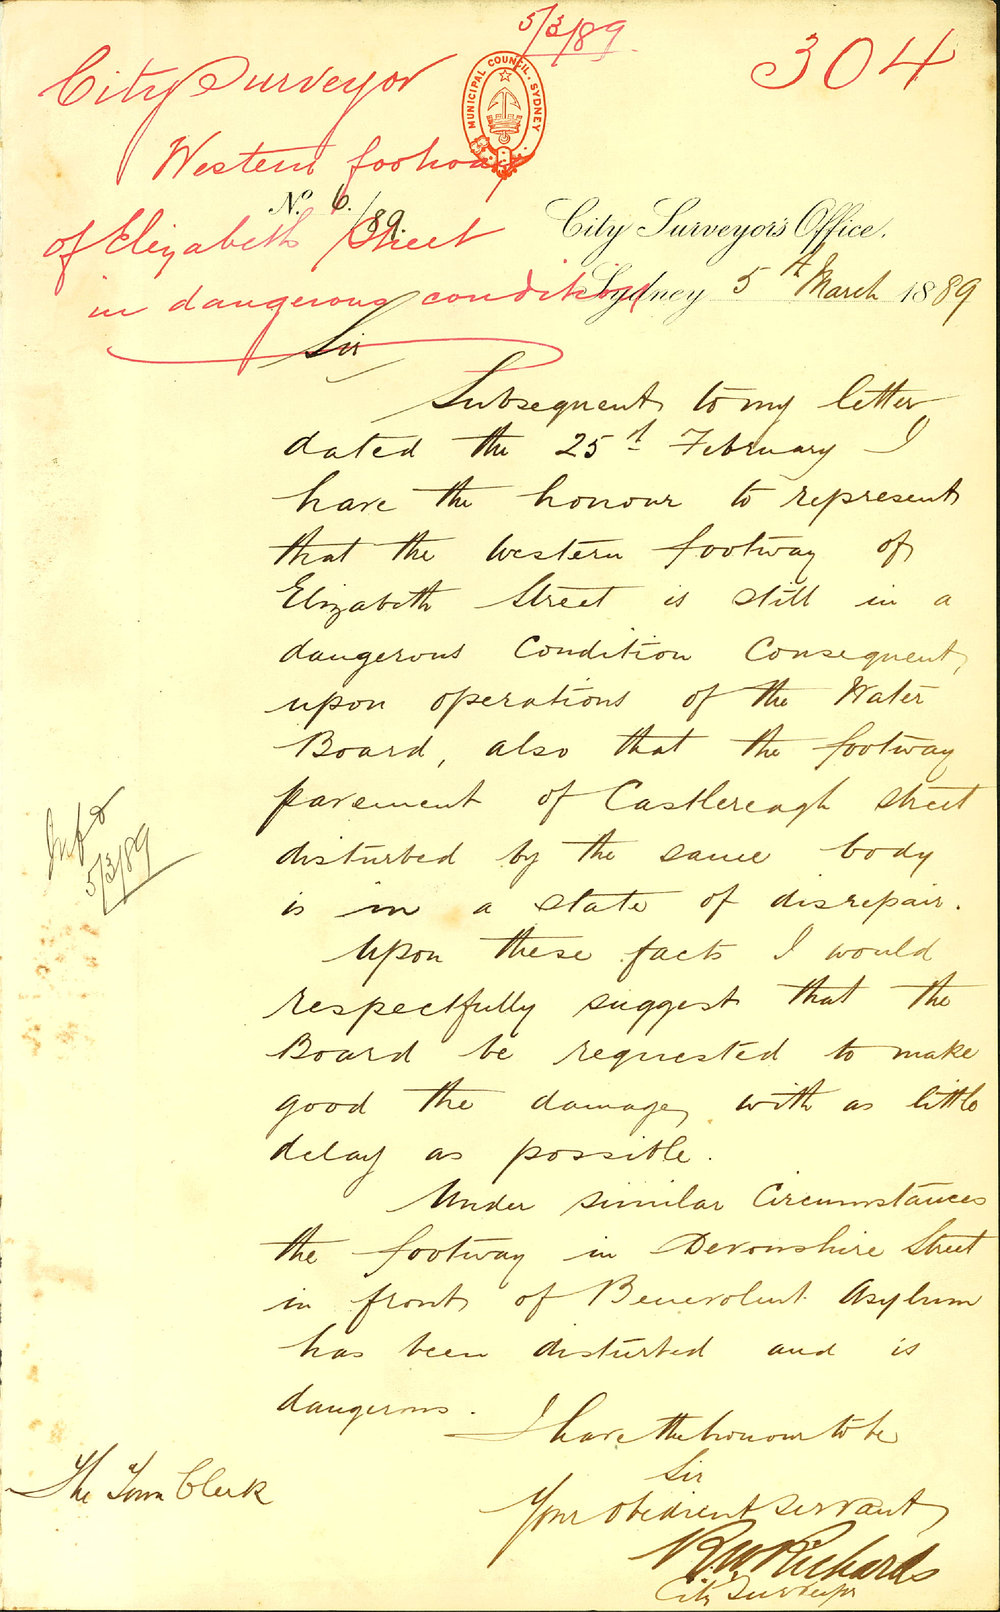 5/3/89
304
City Surveyor
MUNICIPAL COUNCIL. SYDNEY
Western footway
No. 6./89.
of Elizabeth Street
City Surveyor's Office.
in dangerous condition
Sydney 5th March 1889
Sir
Subsequent to my letter
dated the 25th February I
have the honour to represent
that the Western footway of
Elizabeth Street is still in a
dangerous Condition Consequent
upon operations of the Water
Board, also that the footway
pavement of Castlereagh street
disturbed by the same body
is in a state of disrepair.
Upon these facts I would
respectfully suggest that the
Board be requested to make
good the damage, with as little
delay as possible.
Under similar Circumstances
the footway in Devonshire Street
in front of Benevolent Asylum
has been disturbed and is
dangerous.
I have the honour to be
Sir
Your obedient servant,
R W Richards
City Surveyor
The Town Clerk
5/3/89